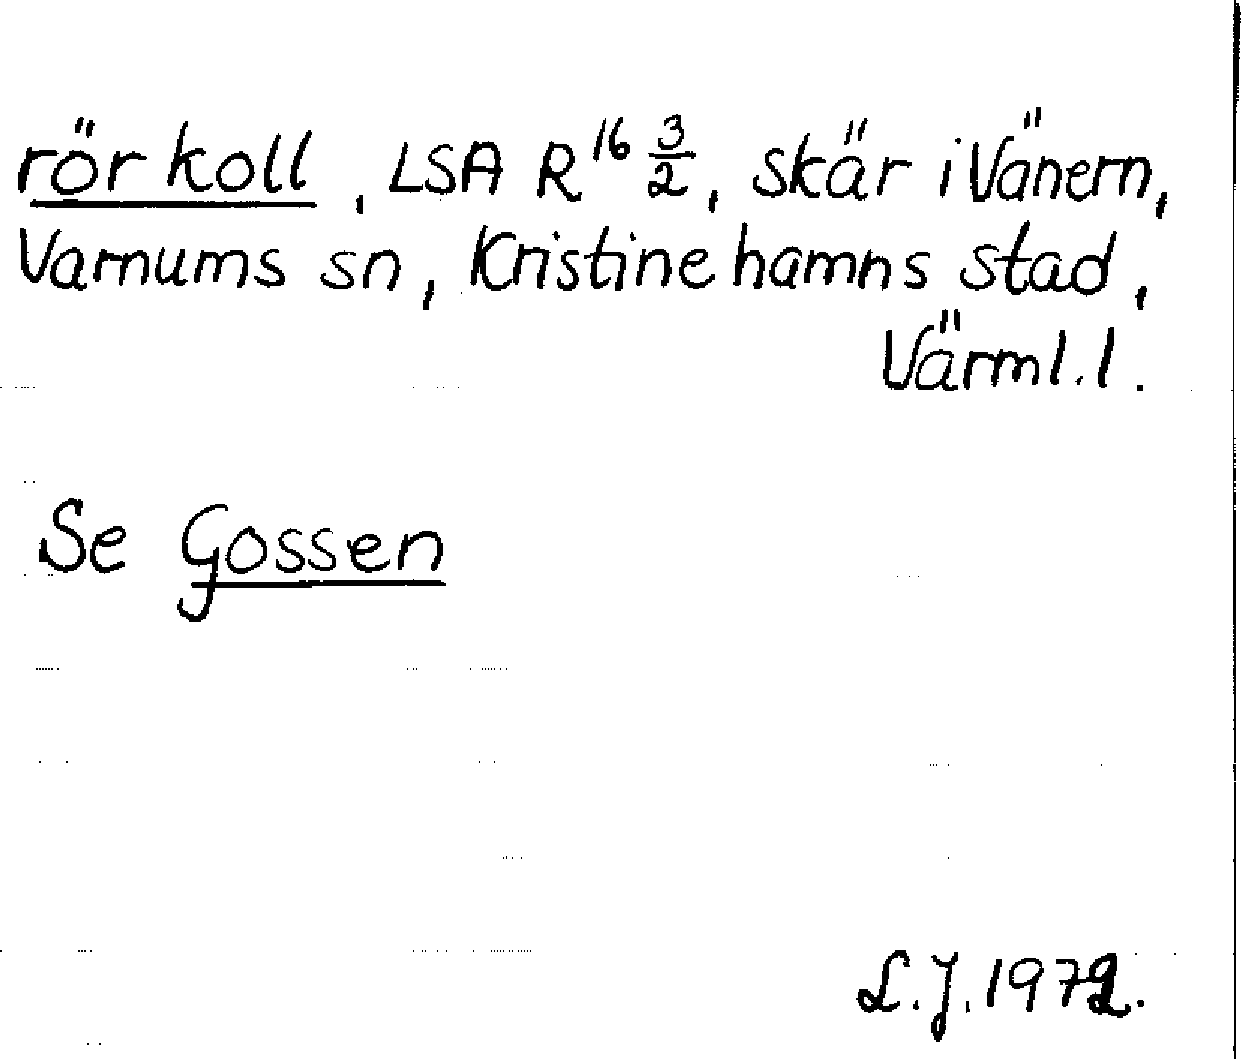 rör koll, LSA R¹⁶ 3/2, skär i Vänern,
Varnums sn, Kristinehamns stad,
Värml.l.
Se Gossen
L.J. 1972.